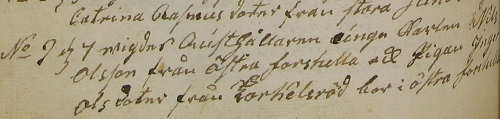 Catrina Rasmus doter från stora
No 9 d 7 wigdes Rusthållaren unge Marten
Olsson från östra forshella och Pigan Inge
Ols doter från Torkelsröd bor i östra forshella